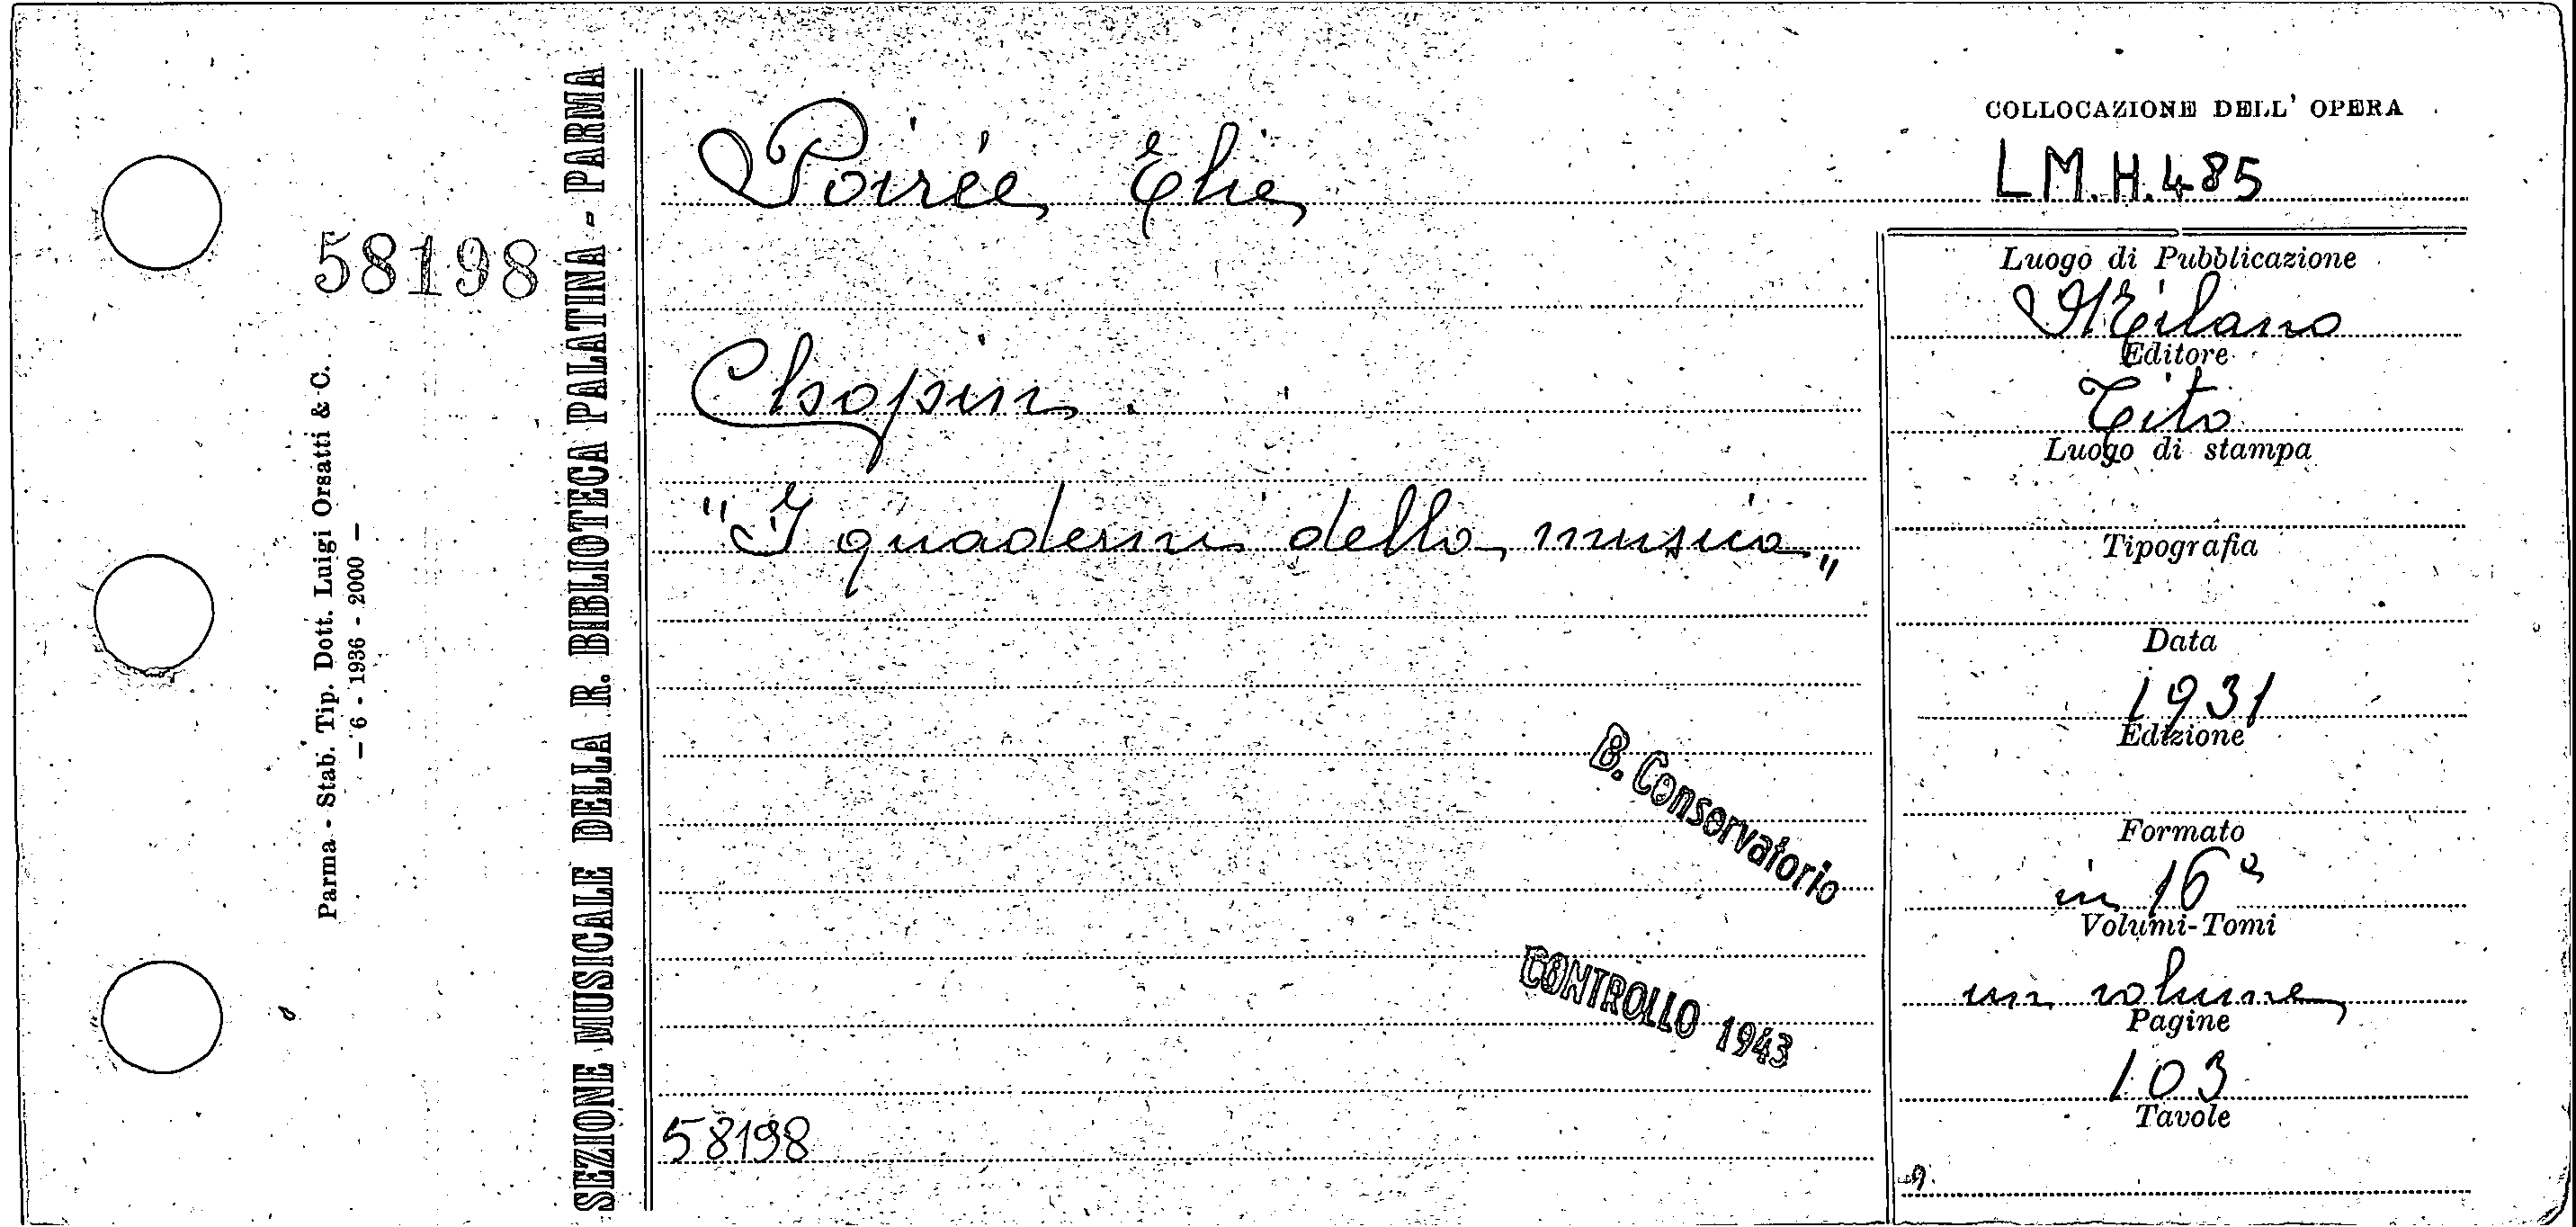 58198
Parma - Stab. Tip. Dott. Luigi Orsatti & C.
— 6 - 1936 - 2000 —
SEZIONE MUSICALE DELLA R. BIBLIOTECA PALATINA - PARMA
Poirée Elie
Chopin.
"I quaderni della musica„
B. Conservatorio
CONTROLLO 1943
58198
COLLOCAZIONE DELL' OPERA
LM.H.485
Luogo di Pubblicazione
Milano
Editore
Tito
Luogo di stampa
Tipografia
Data
1931
Edizione
Formato
in 16º
Volumi-Tomi
un volume
Pagine
103
Tavole